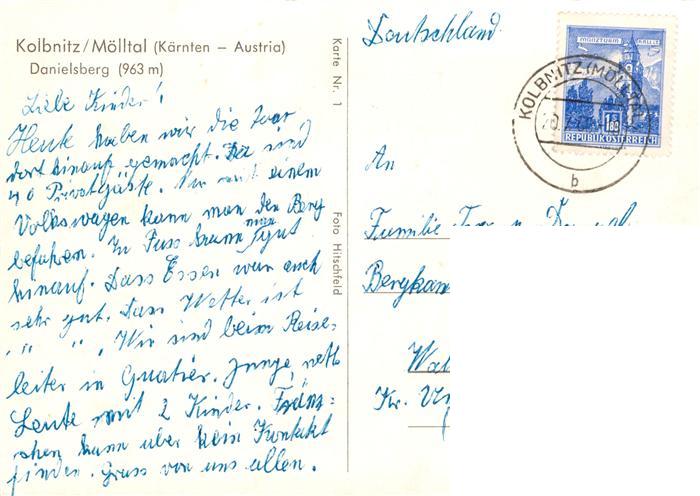 Kolbnitz/Mölltal (Kärnten – Austria)
Danielsberg (963 m)
Liebe Kinder!
Heute haben wir die Tour
dort hinauf gemacht. Da sind
40 Privatgäste. Nur mit einem
Volkswagen kann man den Berg
befahren. Zu Fuss kann man gut
hinauf. Dass Essen war auch
sehr gut. Dass Wetter ist
" " " Wir sind beim Reise-
leiter in Quatier. Junge, nette
Leute mit 2 Kinder. Fränz-
chen kann aber kein Kontakt
finden. Gruss von uns allen.
Karte Nr. 1
Foto Hitschfeld
Deutschland
MÜNZTURM HALL I. T.
1.80
REPUBLIK ÖSTERREICH
KOLBNITZ (MÖLLTAL)
b
An
Familie
Bergkam
Wal
Kr.